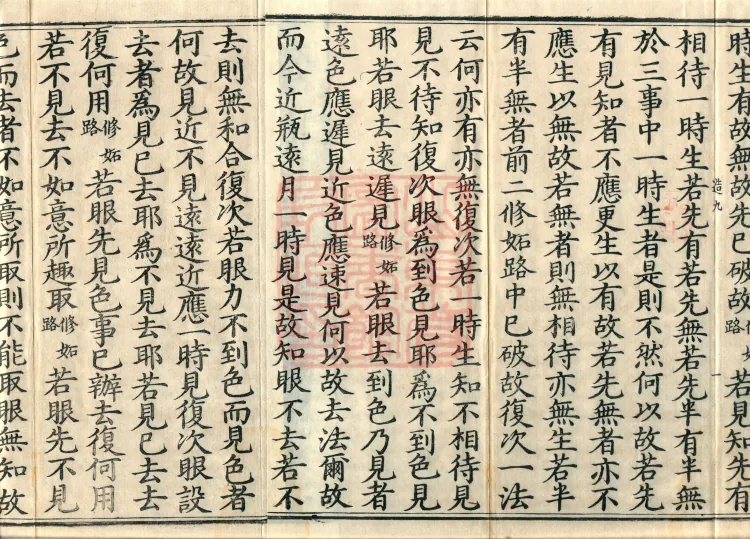 時生有故無故先已破故路若見知先有
造九
一
相待一時生若先有若先無若先半有半無
於三事中一時生者是則不然何以故若先
有見知者不應更生以有故若先無者亦不
應生以無故若無者則無相待亦無生若半
有半無者前二修妬路中已破故復次一法
云何亦有亦無復次若一時生知不相待見
見不待知復次眼爲到色見耶爲不到色見
耶若眼去遠遲見修妬路若眼去到色乃見者
遠色應遲見近色應速見何以故去法爾故
而今近瓶遠月一時見是故知眼不去若不
去則無和合復次若眼力不到色而見色者
何故見近不見遠遠近應一時見復次眼設
去者爲見已去耶爲不見去耶若見已去去
復何用修妬路若眼先見色事已辦去復何用
若不見去不如意所趣取修妬路若眼先不見
色而去者不如意所取則不能取眼無知故